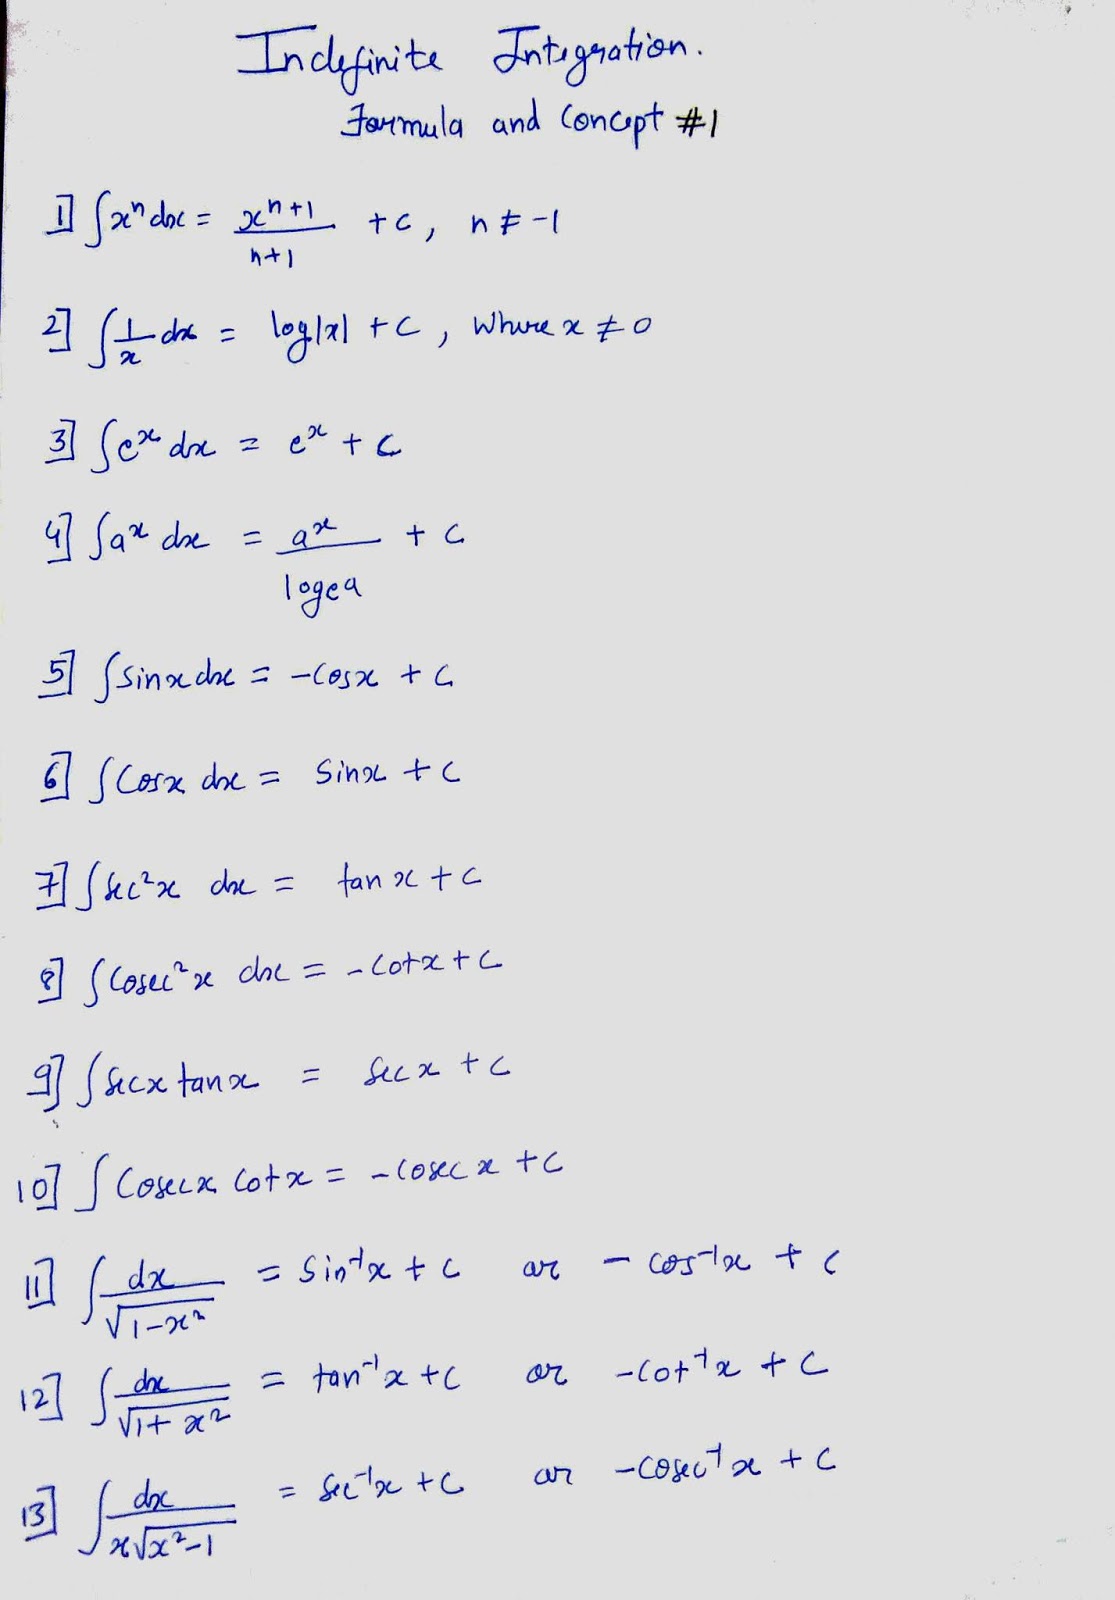 Indefinite Integration.
Formula and Concept #1
1] ∫xⁿ dx = xⁿ⁺¹/n+1 + c, n ≠ -1
2] ∫1/x dx = log|x| + c, where x ≠ 0
3] ∫eˣ dx = eˣ + c
4] ∫aˣ dx = aˣ/logea + c
5] ∫sinx dx = -cosx + c
6] ∫Cosx dx = Sinx + c
7] ∫sec²x dx = tanx + c
8] ∫Cosec²x dx = -Cotx + c
9] ∫secx tanx = secx + c
10] ∫Cosecx Cotx = -Cosecx + c
11] ∫dx/√1-x² = Sin⁻¹x + c or - cos⁻¹x + c
12] ∫dx/√1+x² = tan⁻¹x + c or -Cot⁻¹x + c
13] ∫dx/x√x²-1 = Sec⁻¹x + c or -Cosec⁻¹x + c